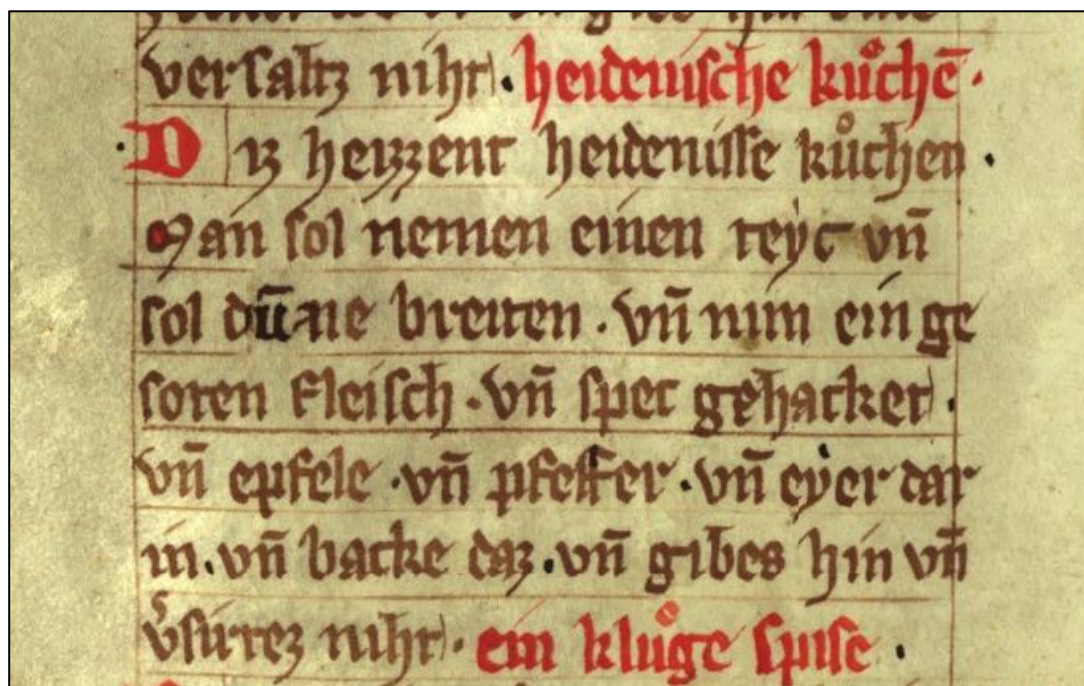 versaltz niht · heidenische kuͦchē ·
Diz heizzent heidenisse kuͦchen ·
Man sol nemen einen teyc vn̄
sol dūnne breiten · vn̄ nim ein ge
soten fleisch · vn̄ spec gehacket ·
vn̄ epfele · vn̄ pfeffer · vn̄ eyer dar
in · vn̄ backe daz · vn̄ gibes hin vn̄
v̾sirtez niht · ein kluͦge spise ·